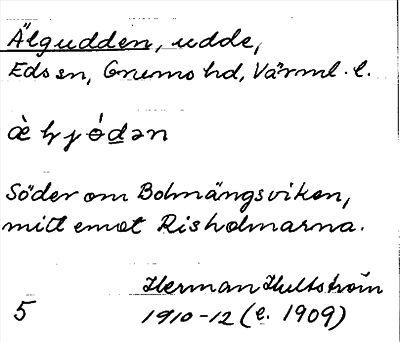 Älgudden, udde,
Eds sn, Grums hd, Värml. l.
Söder om Bolmängsviken,
mitt emot Risholmarna.
Herman Hultström
5 1910-12 (e. 1909)